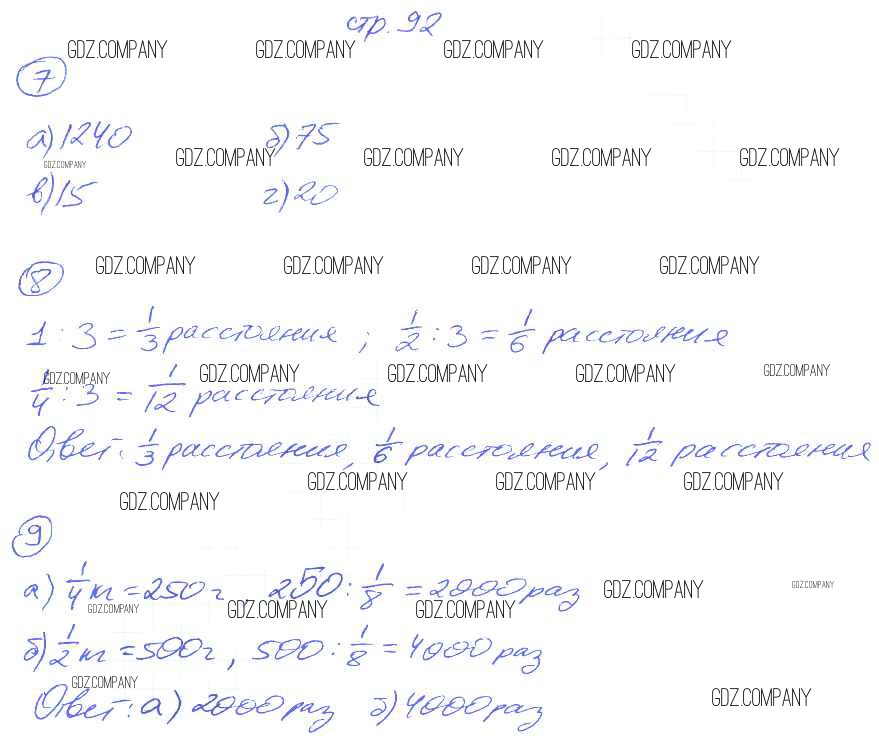 стр. 92
GDZ.COMPANY GDZ.COMPANY GDZ.COMPANY GDZ.COMPANY
7
а) 1240 б) 75
GDZ.COMPANY GDZ.COMPANY GDZ.COMPANY GDZ.COMPANY GDZ.COMPANY
в) 15 г) 20
GDZ.COMPANY GDZ.COMPANY GDZ.COMPANY GDZ.COMPANY
8
1 : 3 = 1/3 расстояния ; 1/2 : 3 = 1/6 расстояния
GDZ.COMPANY GDZ.COMPANY GDZ.COMPANY GDZ.COMPANY GDZ.COMPANY
1/4 : 3 = 1/12 расстояния
Ответ: 1/3 расстояния, 1/6 расстояния, 1/12 расстояния
GDZ.COMPANY GDZ.COMPANY GDZ.COMPANY GDZ.COMPANY
9
а) 1/4 т = 250 г, 250 : 1/8 = 2000 раз
GDZ.COMPANY GDZ.COMPANY
GDZ.COMPANY GDZ.COMPANY GDZ.COMPANY
б) 1/2 т = 500 г, 500 : 1/8 = 4000 раз
GDZ.COMPANY GDZ.COMPANY
Ответ: а) 2000 раз б) 4000 раз